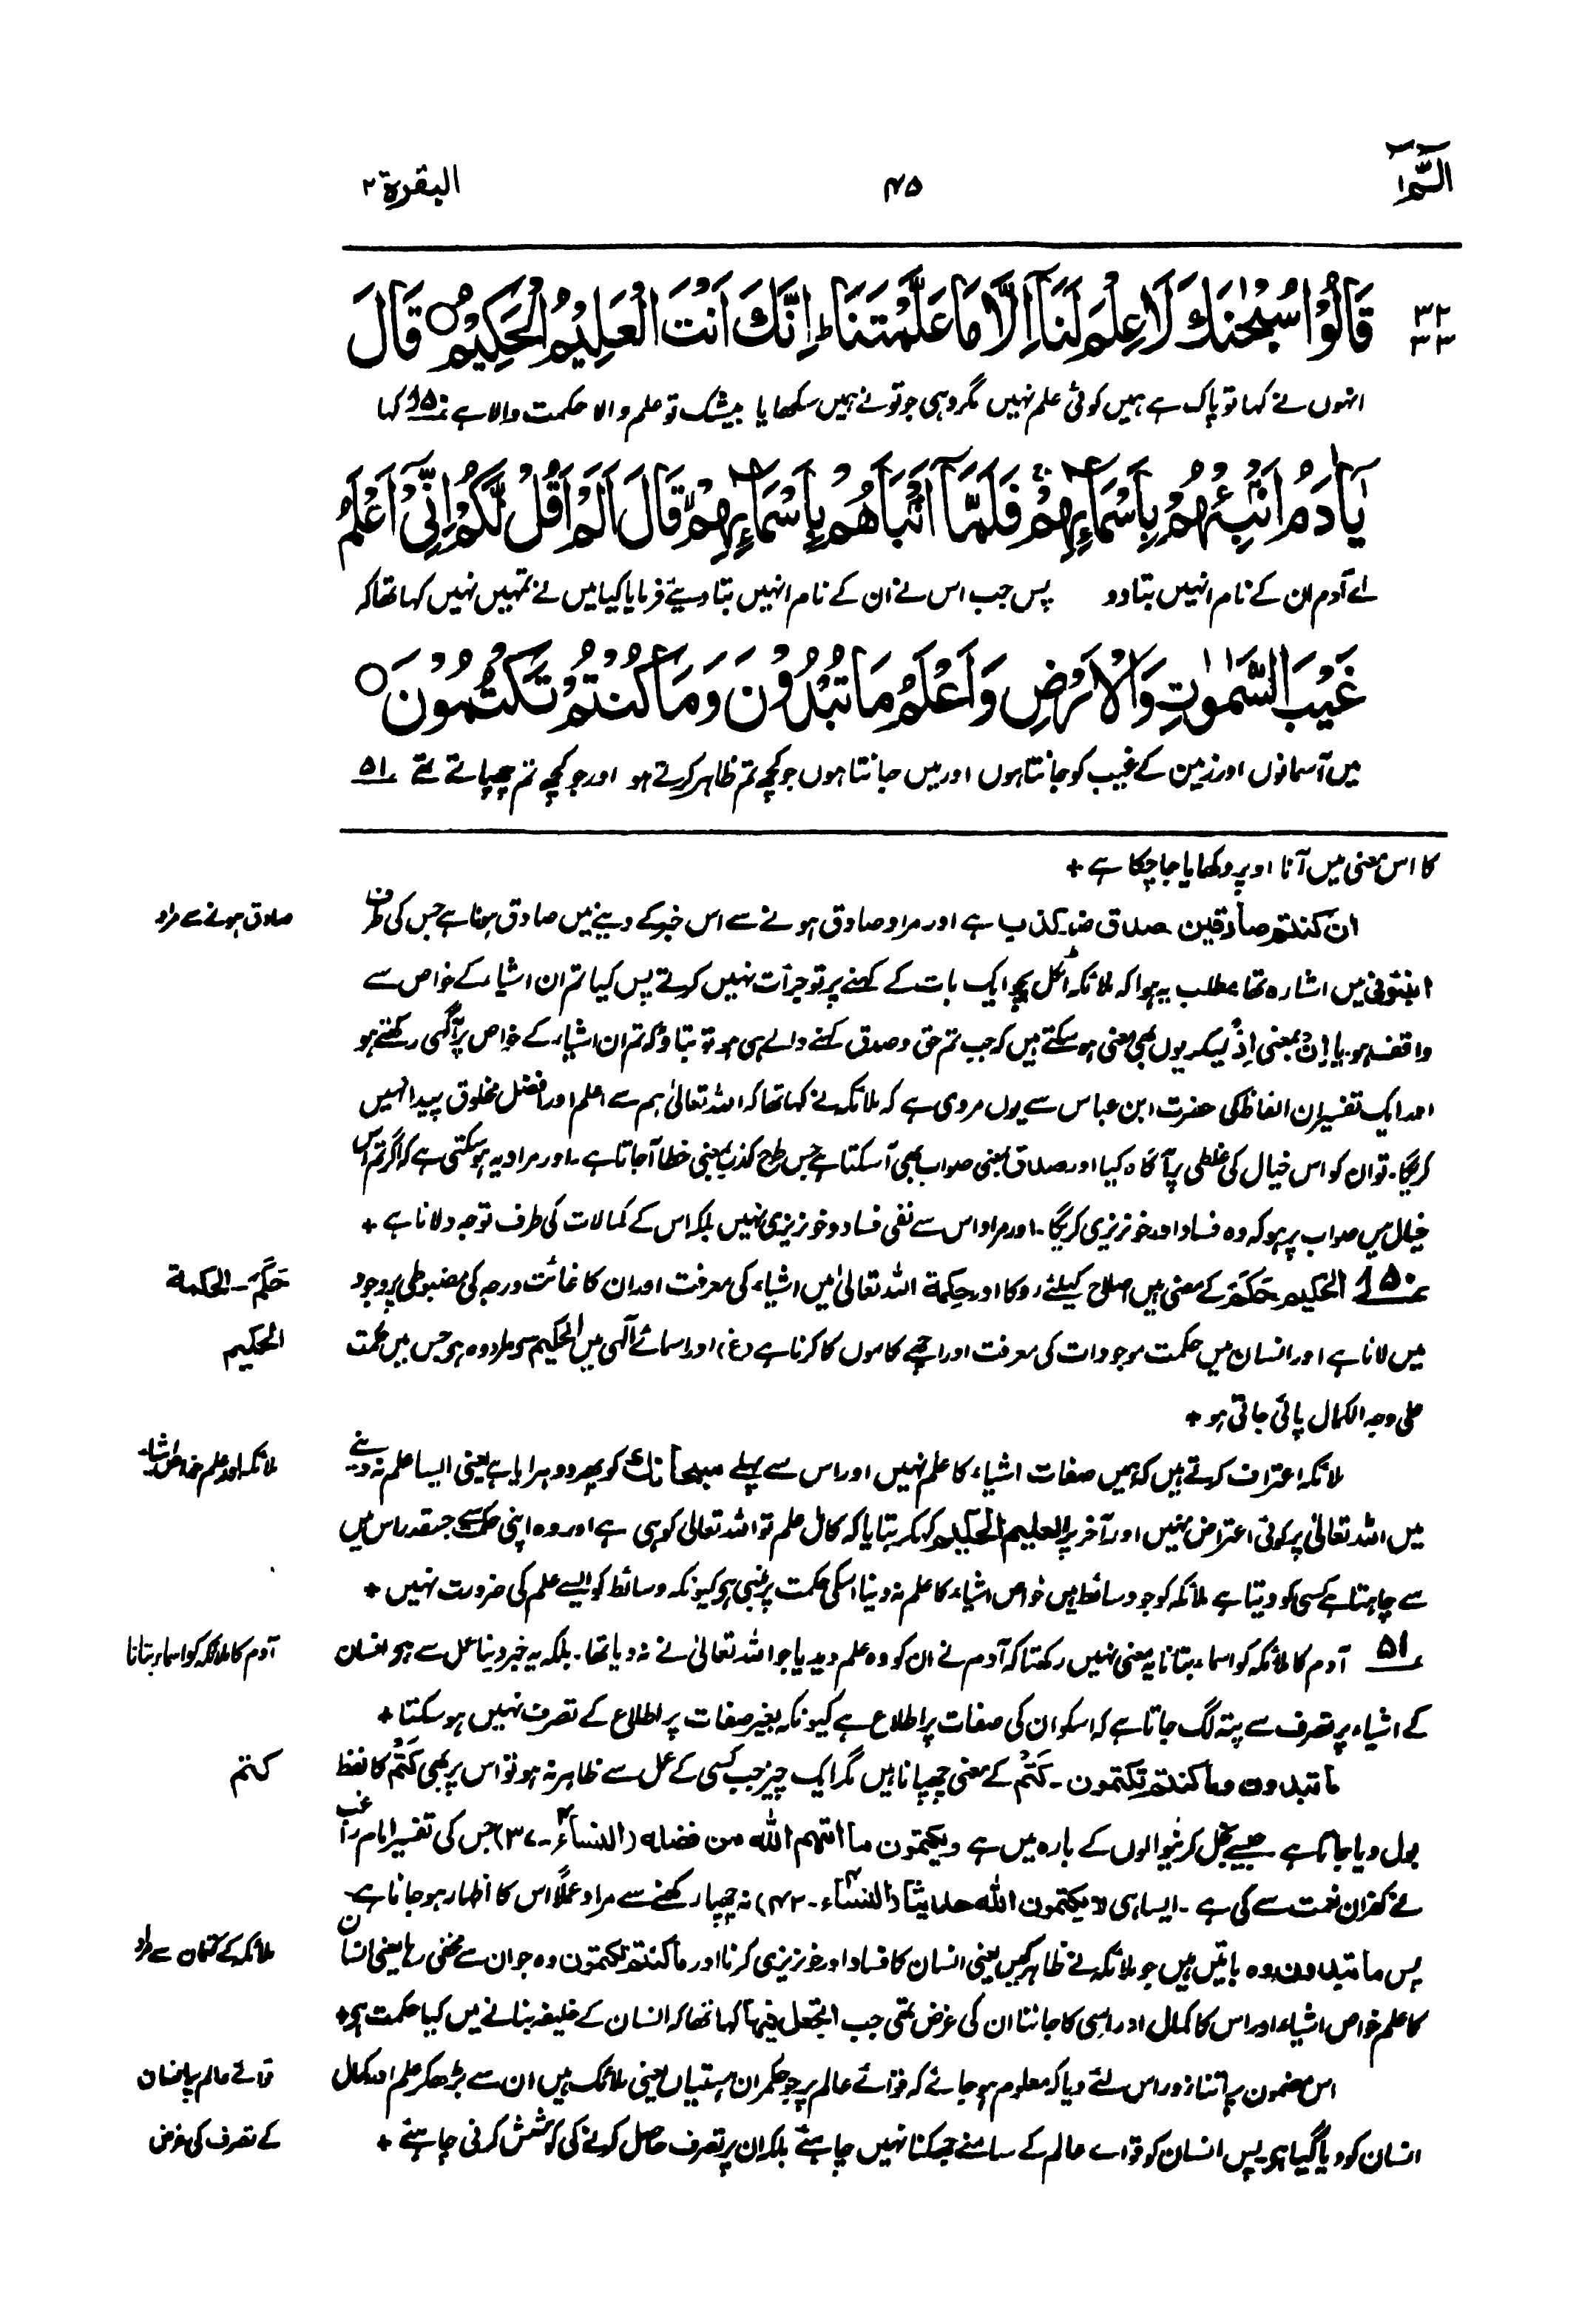 الٓمّٓ ١
٤٥
البقرة ٢
٣٢
٣٣
قَالُوْا سُبْحٰنَكَ لَا عِلْمَ لَنَآ اِلَّا مَا عَلَّمْتَنَا ؕ اِنَّكَ اَنْتَ الْعَلِيْمُ الْحَكِيْمُ ○ قَالَ
انہوں نے کہا تو پاک ہے ہمیں کوئی علم نہیں مگر وہی جو تو نے ہمیں سکھایا بیشک تو علم والا حکمت والا ہے ۵۰ کہا
يٰۤاٰدَمُ اَنْۢبِئْهُمْ بِاَسْمَآئِهِمْ ۚ فَلَمَّآ اَنْۢبَاَهُمْ بِاَسْمَآئِهِمْ ۙ قَالَ اَلَمْ اَقُلْ لَّكُمْ اِنِّيْٓ اَعْلَمُ
اے آدم ان کے نام انہیں بتا دو پس جب اس نے ان کے نام انہیں بتا دیئے فرمایا کیا میں نے تمہیں نہیں کہا تھا کہ
غَيْبَ السَّمٰوٰتِ وَالْاَرْضِ وَاَعْلَمُ مَا تُبْدُوْنَ وَمَا كُنْتُمْ تَكْتُمُوْنَ ○
میں آسمانوں اور زمین کے غیب کو جانتا ہوں اور میں جانتا ہوں جو کچھ تم ظاہر کرتے ہو اور جو کچھ تم چھپاتے تھے ۵۱
کا اس معنی میں آنا اوپر دکھایا جا چکا ہے +
ان کنتم صادقین۔ صدق ضد کذب ہے اور مراد صادق ہونے سے اس خبر کے دینے میں صادق ہونا ہے جس کی طرف
صادق ہونے سے مراد
انبئونی میں اشارہ تھا مطلب یہ ہوا کہ ملائکہ اٹکل پچو ایک بات کے کہنے پر تو جرأت نہیں کرتے پس کیا تم ان اشیاء کے خواص سے
واقف ہو۔ یا اِنْ بمعنی اِذْ لیکر یوں بھی معنی ہو سکتے ہیں کہ جب تم حق و صدق کہنے والے ہی ہو تو بتاؤ کہ تم ان اشیاء کے خواص پر آگہی رکھتے ہو
اور ایک تفسیر ان الفاظ کی حضرت ابن عباس سے یوں مروی ہے کہ ملائکہ نے کہا تھا کہ اللہ تعالیٰ ہم سے اعلم اور افضل مخلوق پیدا نہیں
کریگا۔ تو ان کو اس خیال کی غلطی پر آگاہ کیا اور صدق بمعنی صواب بھی آ سکتا ہے جس طرح کذب بمعنی خطا آجاتا ہے۔ اور مراد یہ ہو سکتی ہے کہ اگر تم اس
خیال میں صواب پر ہو کہ وہ فساد اور خونریزی کریگا۔ اور مراد اس سے نفی فساد و خونریزی نہیں بلکہ اس کے کمالات کی طرف توجہ دلانا ہے +
۵۰ الحکیم حَکَمَ کے معنی ہیں اصلاح کیلئے روکا اور حِکمة اللہ تعالیٰ میں اشیاء کی معرفت اور ان کا غائت درجہ کی مضبوطی پر وجود
حَکَمَ۔ الحکمة
میں لانا ہے اور انسان میں حکمت موجودات کی معرفت اور اچھے کاموں کا کرنا ہے (غ) اور اسمائے الٰہی میں الحکیم سے مراد وہ ہے جس میں حکمت
الحکیم
علی وجہ الکمال پائی جاتی ہو +
ملائکہ اعتراف کرتے ہیں کہ ہمیں صفات اشیاء کا علم نہیں اور اس سے پہلے سبحانك کو پھر دوہرایا ہے یعنی ایسا علم نہ دینے
ملائکہ اور علم خواص اشیاء
میں اللہ تعالیٰ پر کوئی اعتراض نہیں اور آخر پر العلیم الحکیم کہکر بتایا کہ کامل علم تو اللہ تعالیٰ کو ہی ہے اور وہ اپنی حکمت سے جسقدر اس میں
سے چاہتا ہے کسی کو دیتا ہے ملائکہ کو جو وسائط ہیں خواص اشیاء کا علم نہ دینا اسکی حکمت پر مبنی ہے کیونکہ وسائط کو ایسے علم کی ضرورت نہیں +
۵۱ آدم کا ملائکہ کو اسماء بتانا یہ معنی نہیں رکھتا کہ آدم نے ان کو وہ علم دیدیا جو اللہ تعالیٰ نے نہ دیا تھا۔ بلکہ یہ خبر دینا عمل سے ہو انسان
آدم کا ملائکہ کو اسماء بتانا
کے اشیاء پر تصرف سے پتہ لگ جاتا ہے کہ اسکو ان کی صفات پر اطلاع ہے کیونکہ بغیر صفات پر اطلاع کے تصرف نہیں ہو سکتا +
ما تبدون وما کنتم تکتمون۔ کَتْم کے معنی چھپانا ہیں مگر ایک چیز جب کسی کے عمل سے ظاہر نہ ہو تو اس پر بھی کَتْم کا لفظ
کتم
بول دیا جاتا ہے۔ جیسے بخل کرنیوالوں کے بارہ میں ہے ویکتمون ما اتٰہم اللہ من فضلہ (النساء ۴۔۳۷) جس کی تفسیر امام راغب
نے کفران نعمت سے کی ہے۔ ایسا ہی لا یکتمون اللہ حدیثا (النساء ۴۔۴۲) نہ چھپا رکھنے سے مراد عملاً اس کا اظہار ہو جانا ہے
پس ما تبدون وہ باتیں ہیں جو ملائکہ نے ظاہر کیں یعنی انسان کا فساد اور خونریزی کرنا اور ما کنتم تکتمون وہ جو ان سے مخفی رہا یعنی انسان
ملائکہ کے کتمان سے مراد
کا علم خواص اشیاء اور اس کا کمال اور اسی کا جاننا ان کی غرض تھی جب اتجعل فیہا کہا تھا کہ انسان کے خلیفہ بنانے میں کیا حکمت ہے +
اس مضمون پر اتنا زور اس لئے دیا کہ معلوم ہو جائے کہ قوائے عالم پر جو حکمران ہستیاں یعنی ملائک ہیں ان سے بڑھکر علم اور کمال
قوائے عالم پر انسان
انسان کو دیا گیا ہے پس انسان کو قوائے عالم کے سامنے جھکنا نہیں چاہئے بلکہ ان پر تصرف حاصل کرنے کی کوشش کرنی چاہئے +
کے تصرف کی غرض